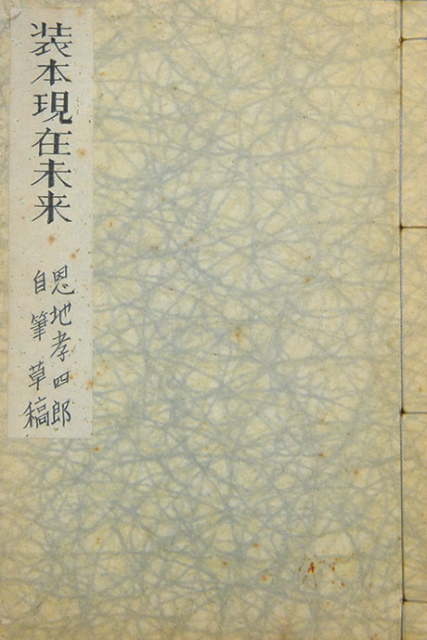 装本現在未来
恩地孝四郎
自筆草稿